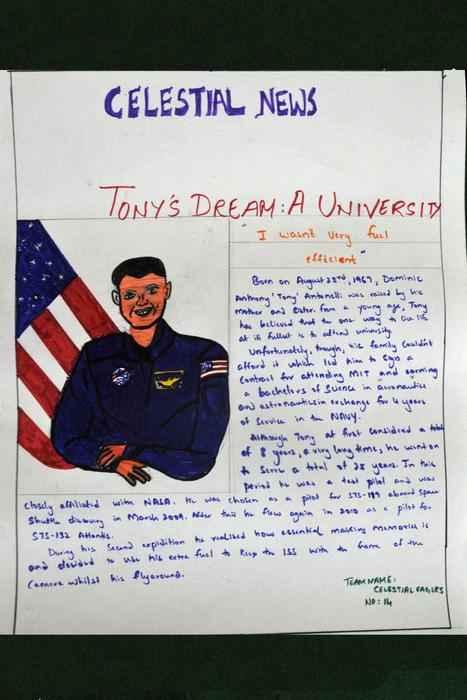 CELESTIAL NEWS
TONY'S DREAM: A UNIVERSITY
"I wasn't very fuel
efficient"
Born on August 23rd, 1967, Dominic
Anthony 'Tony' Antonelli was raised by his
mother and sister. From a young age, Tony
has believed that the one way to live life
at its fullest is to attend university.
Unfortunately, though, his family couldn't
afford it which led him to sign a
contract for attending MIT and earning
a bachelors of Science in aeronautics
and astronautics in exchange for 4 years
of service in the NAVY.
Although Tony at first considered a total
of 8 years, a very long time, he went on
to serve a total of 28 years. In this
period he was a test pilot and was
closely affiliated with NASA. He was chosen as a pilot for STS-119 aboard Space
Shuttle discovery in March 2009. After this he flew again in 2010 as a pilot for
STS-132 Atlantis.
During his second expidition he realised how essential making memories is
and decided to use his extra fuel to keep the ISS with the frame of the
camera whilst his flyaround.
TEAM NAME:
CELESTIAL EAGLES
NO: 14